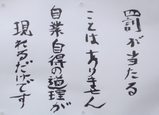 罰が当たる
ことはありません
自業自得の道理が
現れるだけです